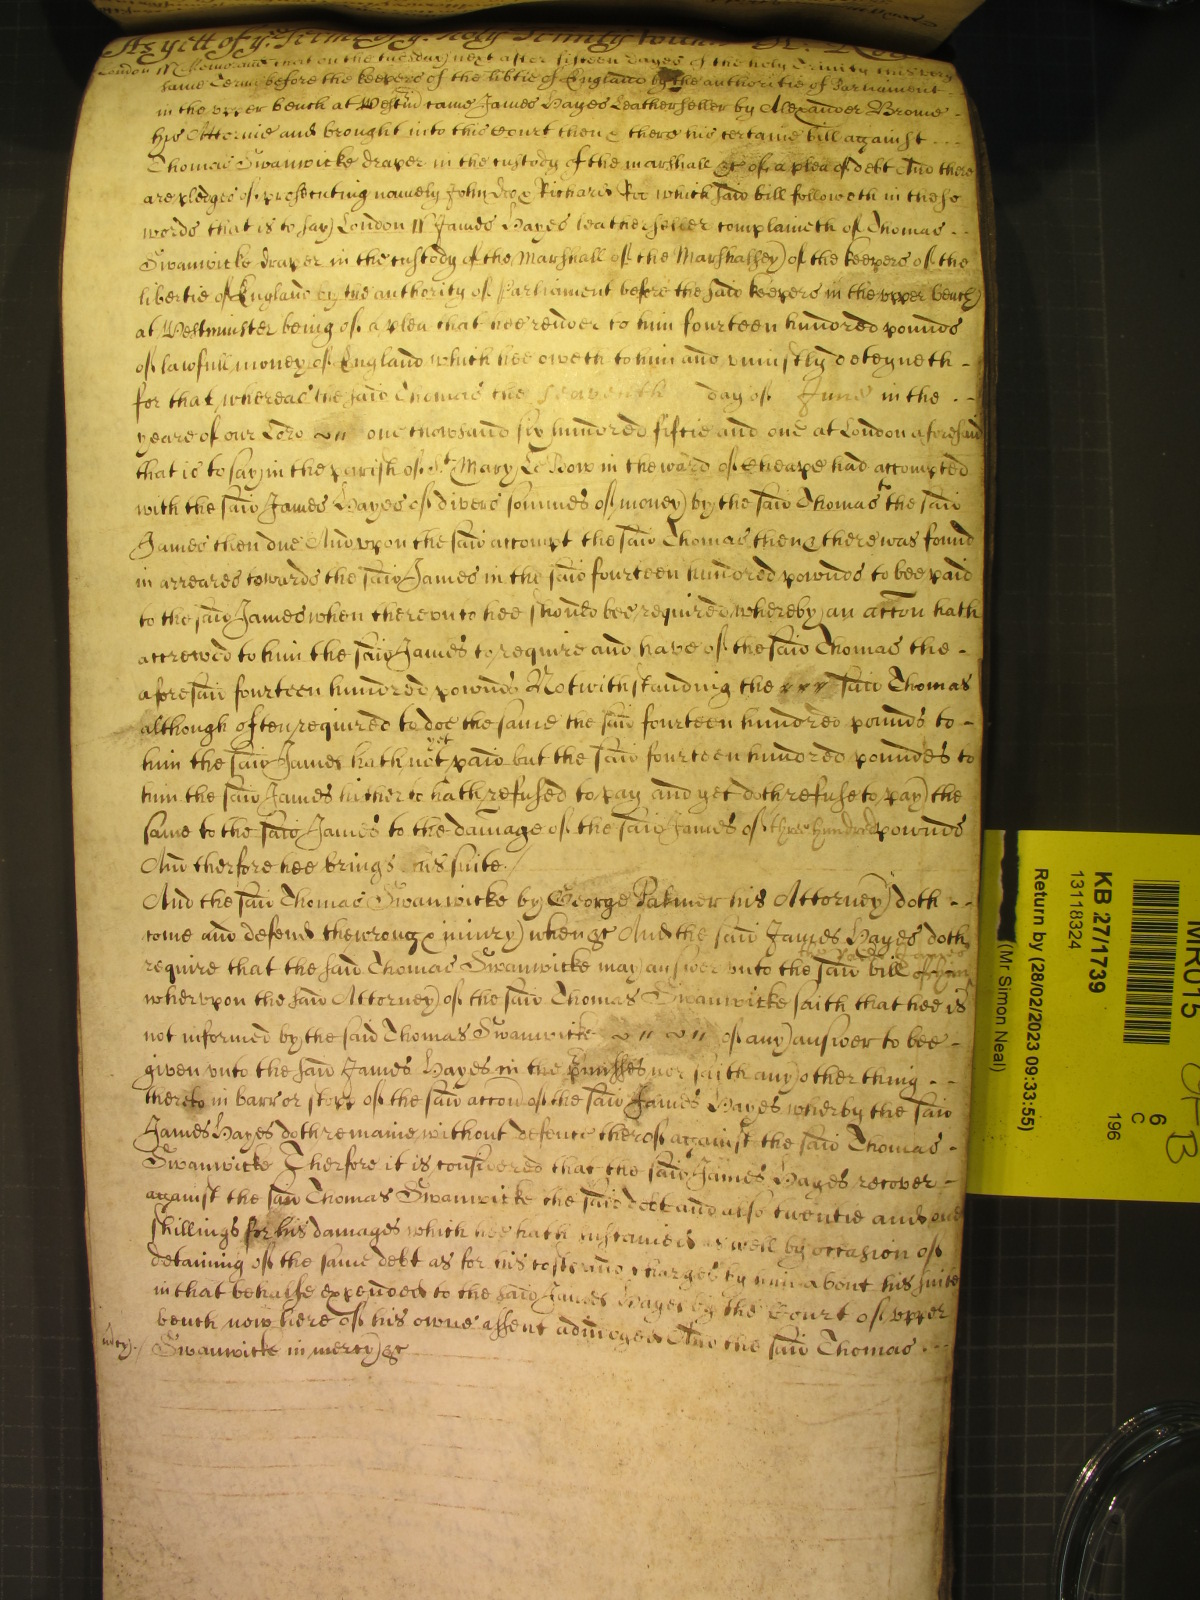 As yett of ye Terme of ye holy Trinity
London // Memorand that on the tuesday next after fifteen dayes of the holy Trinity this very
same Terme before the keepers of the libtie of England by the authoritie of Parliament
in the vpper bench at Westm came James Hayes Leatherseller by Alexander Brome -
his Attornie and brought into this court then & there his certaine bill against - - -
Thomas Swanwicke draper in the custody of the marshall &c of a plea of debt And there
are pledges of prosecuting namely John Doe & Richard Roe which said bill followeth in these
words that is to say) London // James Hayes leatherseller complaineth of Thomas - -
Swanwicke draper in the custody of the Marshall of the Marshalsey) of the keepers of the
libertie of England by the authority of Parliament before the said keepers in the vpper bench)
at Westminster being of a plea that hee render to him fourteen hundred pounds
of lawfull money of England which hee oweth to him and vniustly deteyneth -
for that whereas the said Thomas the seaventh day of June in the - -
yeare of our Lord one thowsand six hundred fiftie and one at London aforesaid
that is to say) in the parish of St Mary Le Bow in the ward of Cheape had accompted
with the said James Hayes of divers sommes of money) by the said Thomas to the said
James then due And vpon the said accompt the said Thomas then & there was found
in arreares towards the said James in the said fourteen hundred pownds to bee paid
to the said James when therevnto hee should bee required whereby) an accon hath
accrewed to him the said James to require and have of the said Thomas the -
aforesaid fourteen hundred pownds Notwithstanding the said Thomas
although often required to doe the same the said fourteen hundred pounds to -
him the said James hath not yet paid but the said fourteen hundred poundes to
him the said James hitherto hath refused to pay and yet doth refuse to pay) the
same to the said James to the damage of the said James of three hundred pownds
And therfore hee brings his suite /
And the said Thomas Swanwicke by George Palmer his Attorney) doth - -
come and defend the wrong & iniury) when &c And the said James Hayes doth
require that the said Thomas Swanwicke may) answer vnto the said bill
whervpon the said Attorney) of the said Thomas Swanwicke saith that hee is
not informed by the said Thomas Swanwicke of any) answer to bee -
given vnto the said James Hayes in the pmisses nor saith any) other thing - -
thereto in barr or stopp of the said accon of the said James Hayes wherby the said
James Hayes doth remaine without defence therof against the said Thomas -
Swanwicke Therfore it is considered that the said James Hayes recover -
against the said Thomas Swanwicke the said debt and also twentie and one
shillings for his damages which hee hath susteined as well by occasion of
detaining of the same debt as for his costs and charges by him about his suite
in that behalfe expended to the said James Hayes by the Court of vpper
bench now here of his owne assent adiudged And the said Thomas - - -
mcy) / Swanwicke in mercy) &c
MR015
KB 27/1739
13118324
Return by (28/02/2023 09:33:55)
(Mr Simon Neal)
6
C
196